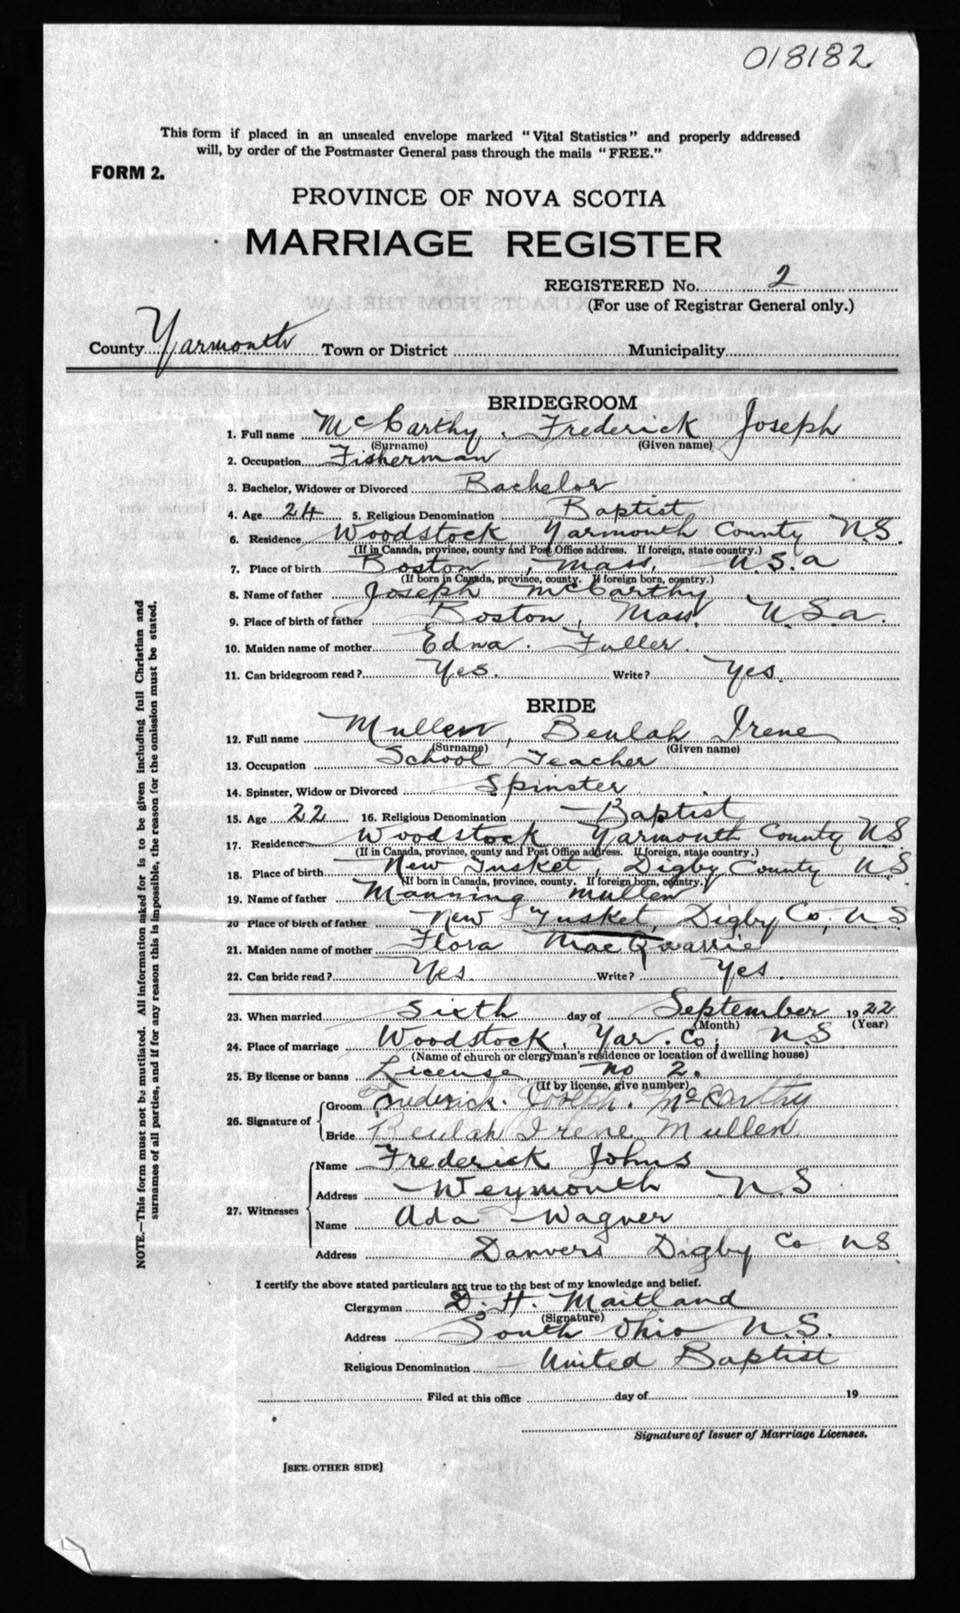 018182
This form if placed in an unsealed envelope marked "Vital Statistics" and properly addressed
will, by order of the Postmaster General pass through the mails "FREE."
FORM 2.
PROVINCE OF NOVA SCOTIA
MARRIAGE REGISTER
REGISTERED No. 2
(For use of Registrar General only.)
County Yarmouth Town or District Municipality
BRIDEGROOM
1. Full name McCarthy, Frederick Joseph
(Surname) (Given name)
2. Occupation Fisherman
3. Bachelor, Widower or Divorced Bachelor
4. Age 24 5. Religious Denomination Baptist
6. Residence Woodstock Yarmouth County N.S.
(If in Canada, province, county and Post Office address. If foreign, state country.)
7. Place of birth Boston, Mass. U.S.a
(If born in Canada, province, county. If foreign born, country.)
8. Name of father Joseph McCarthy
9. Place of birth of father Boston, Mass. U.S.a.
10. Maiden name of mother Edna. Fuller.
11. Can bridegroom read? Yes. Write? Yes.
BRIDE
12. Full name Mullen, Beulah Irene
(Surname) (Given name)
13. Occupation School Teacher
14. Spinster, Widow or Divorced Spinster
15. Age 22 16. Religious Denomination Baptist
17. Residence Woodstock Yarmouth County N.S
(If in Canada, province, county and Post Office address. If foreign, state country.)
18. Place of birth New Tusket, Digby County N S
(If born in Canada, province, county. If foreign born, country.)
19. Name of father Manning Mullen
20 Place of birth of father New Tusket, Digby Co, N S
21. Maiden name of mother Flora MacQuarrie
22. Can bride read? Yes. Write? Yes.
23. When married Sixth day of September 1922
(Month) (Year)
24. Place of marriage Woodstock, Yar. Co, N S
(Name of church or clergyman's residence or location of dwelling house)
25. By license or banns License no 2.
(If by license, give number)
26. Signature of Groom Frederick. Joseph. McCarthy
Bride Beulah Irene Mullen
27. Witnesses Name Frederick Johns
Address Weymouth N S
Name Ada Wagner
Address Danvers Digby Co N S
I certify the above stated particulars are true to the best of my knowledge and belief.
Clergyman D. H. Maitland
(Signature)
Address South Ohio N.S.
Religious Denomination United Baptist
Filed at this office day of 19
Signature of Issuer of Marriage Licenses.
[SEE OTHER SIDE]
NOTE.—This form must not be mutilated. All information asked for is to be given including full Christian and
surnames of all parties, and if for any reason this is impossible, the reason for the omission must be stated.